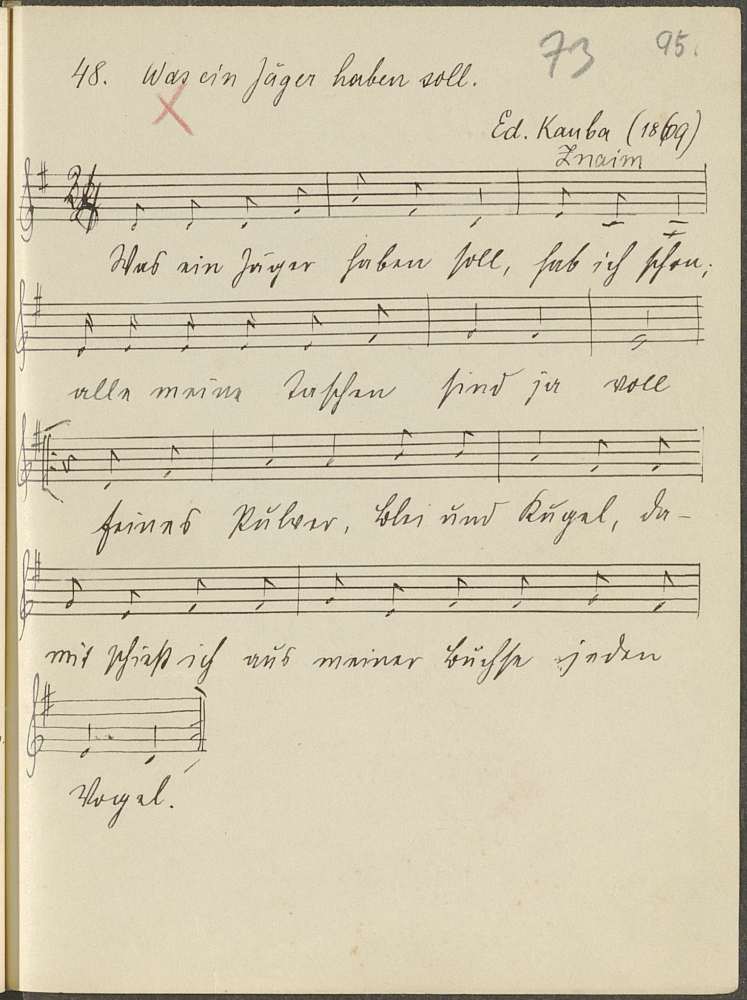 73 95.
48. Was ein Jäger haben soll.
Ed. Kauba (1869)
Znaim
Was ein Jäger haben soll, hab ich schon;
alle meine Taschen sind ja voll
feines Pulver, Blei und Kugel, da-
mit schieß ich aus meiner Büchse jeden
Vogel.